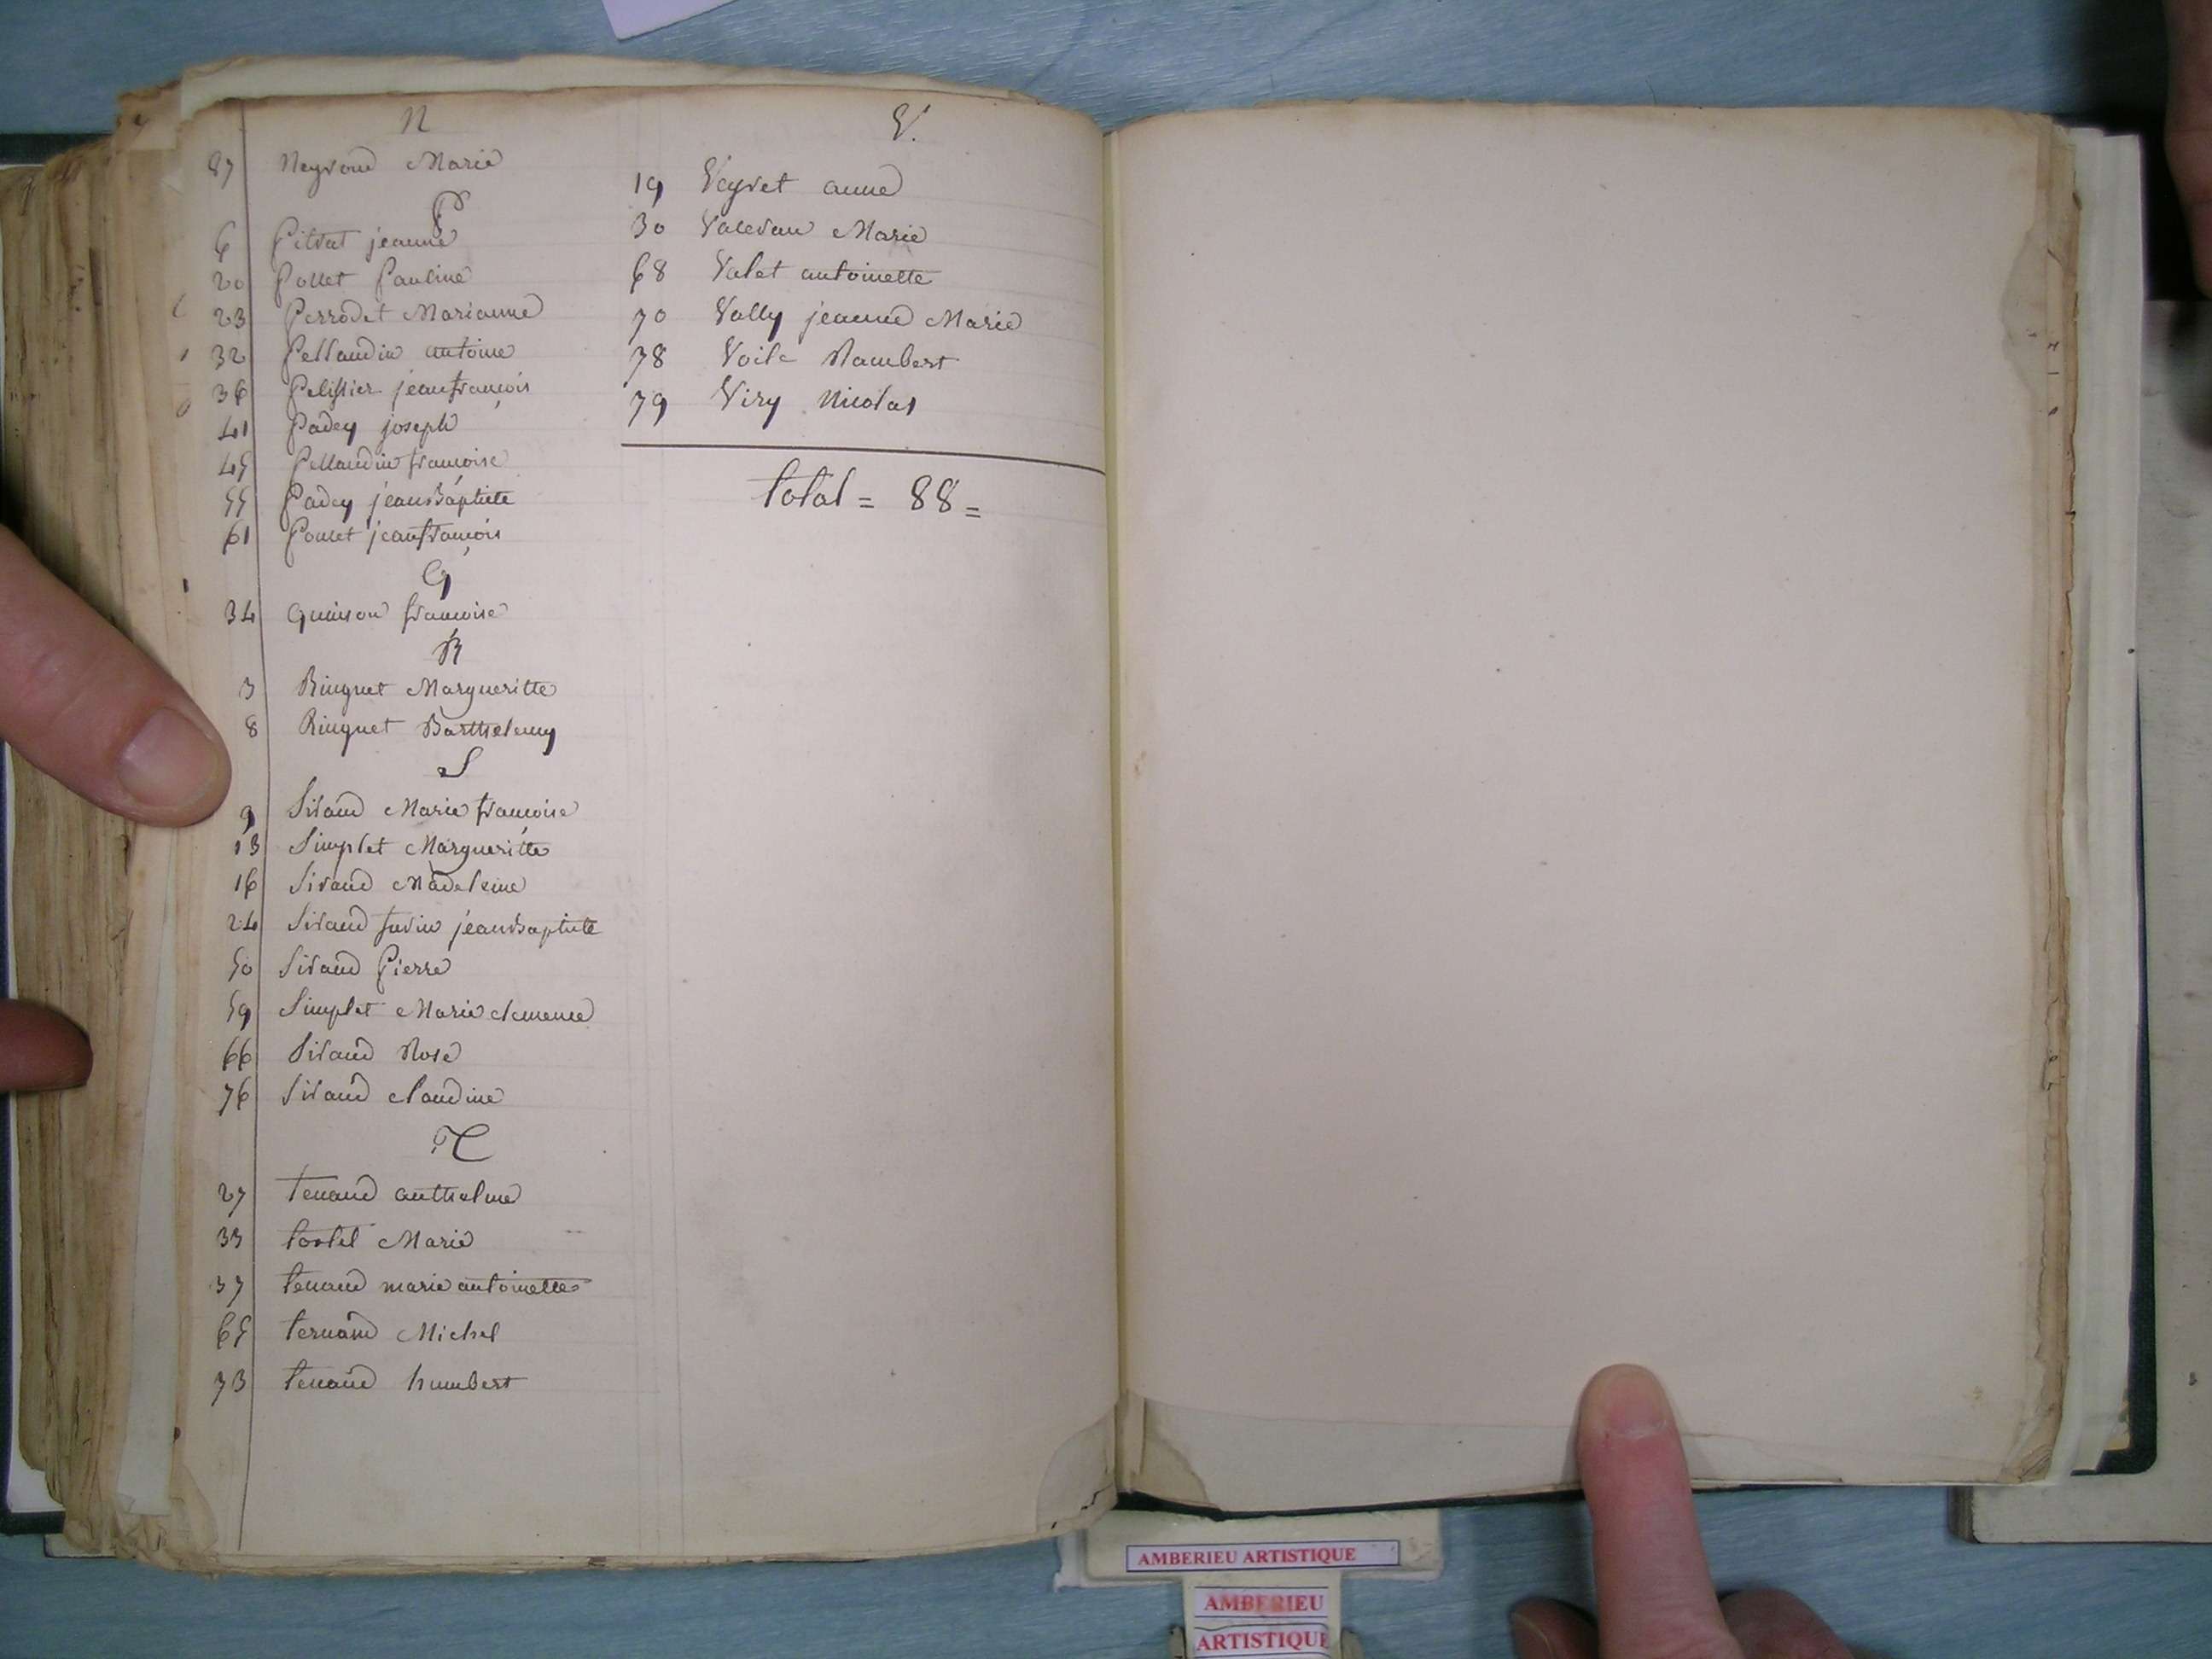 N
87 Neyroud Marie
P
6 Pitrat jeanne
20 Pollet Pauline
23 Perrodet Marianne
32 Pellaudin antoine
36 Pelissier jean françois
41 Padey joseph
45 Pellaudin françoise
55 Padey jean Baptiste
61 Poulet jean françois
Q
34 quinson françoise
R
3 Ringuet Margueritte
8 Ringuet Barthelemy
S
9 Siraud Marie françoise
13 Simplet Margueritte
16 Siraud Madeleine
24 Siraud jean Baptiste
50 Siraud Pierre
59 Simplet Marie clemence
66 Siraud Rose
76 Siraud claudine
T
27 tenand anthelme
33 Marie
37 tenand marie antoinette
65 tenand Michel
73 tenand humbert
V.
19 Veyret anne
30 Marie
68 Valet antoinette
70 Vally jeanne Marie
78 Rambert
79 Viry Nicolas
total = 88 =
AMBERIEU ARTISTIQUE
AMBERIEU
ARTISTIQUE